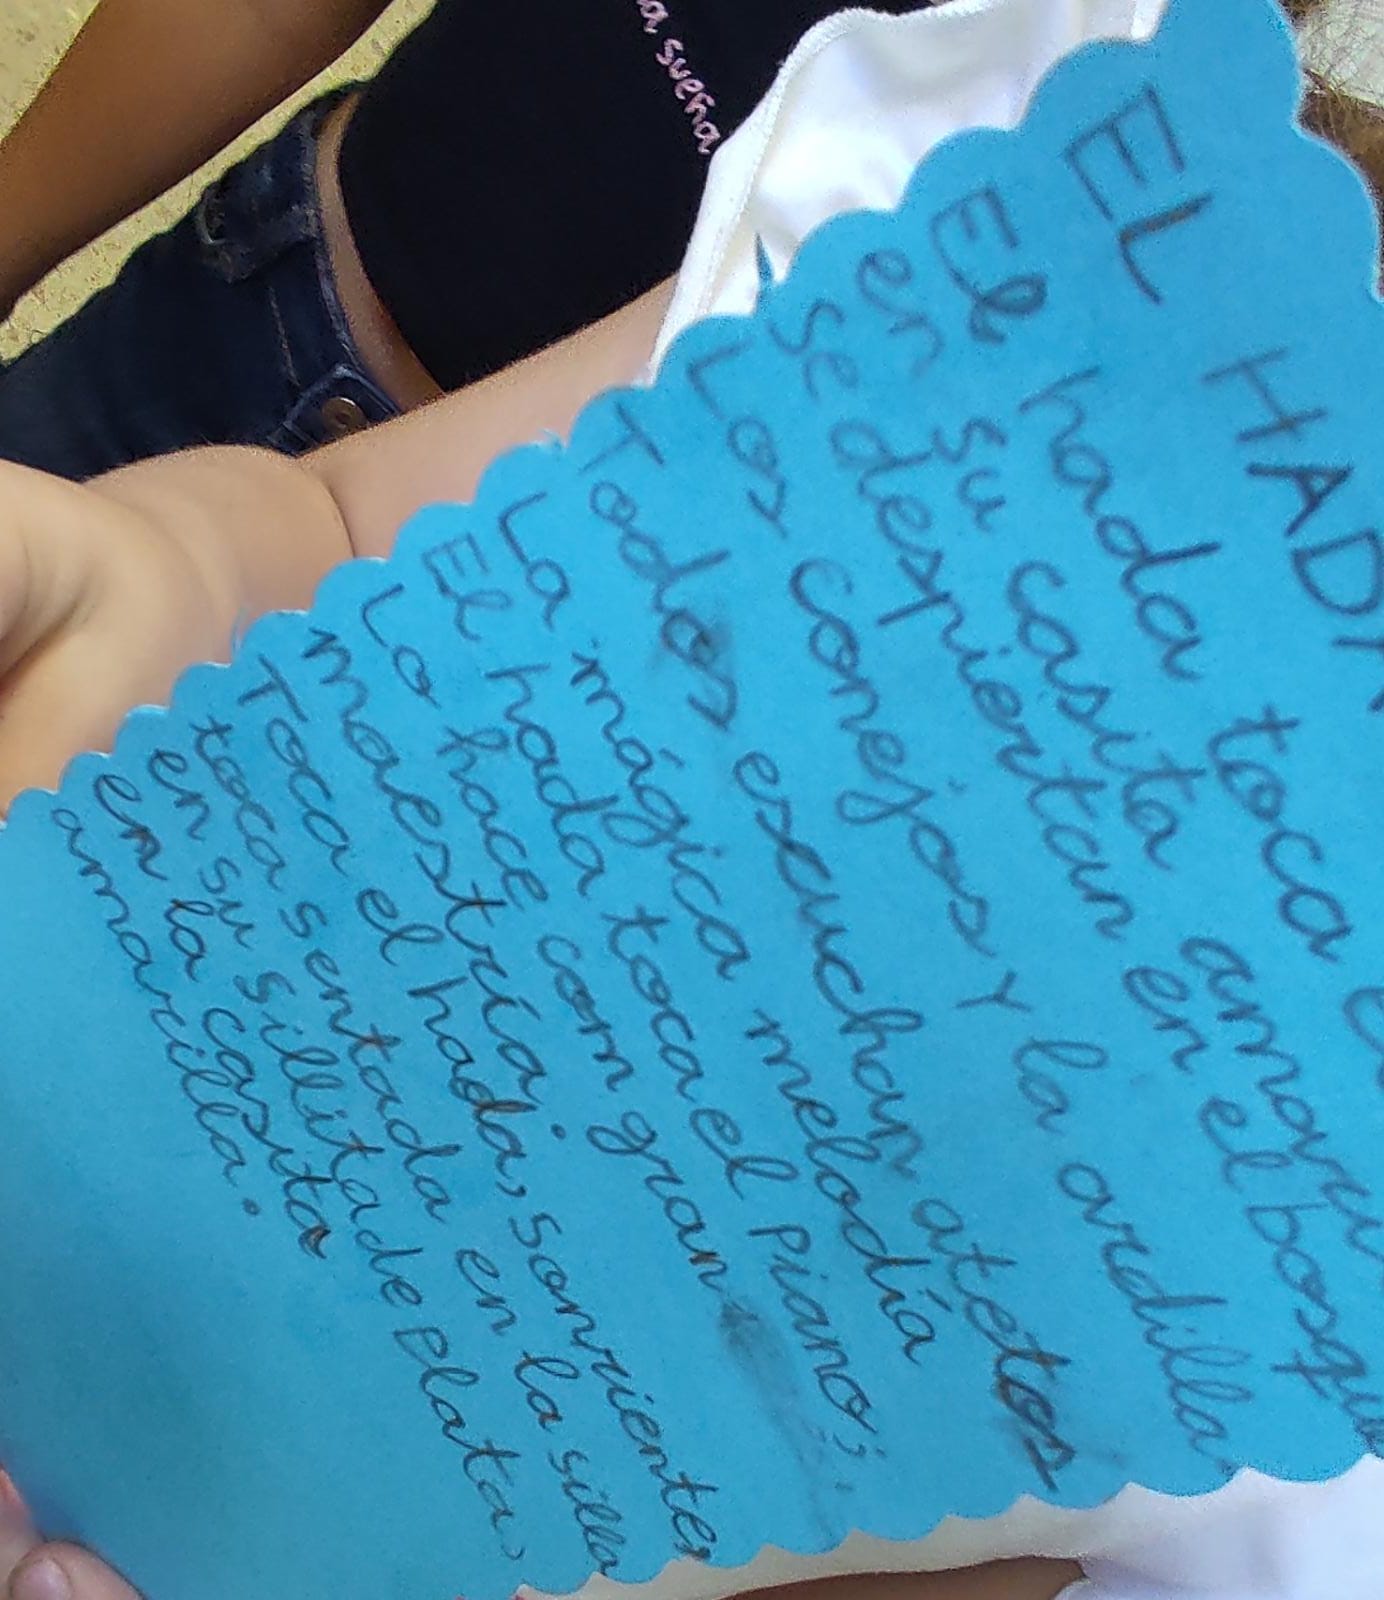 a sueña
EL HADA
El hada toca
en su casita amari
se despiertan en el bosqu
Los conejos y la ardilla.
Todos escuchan atetos
La mágica melodía
El hada toca el piano;
Lo hace con gran
maestría.
Toca el hada, sonrientes
toca sentada en la silla
en su sillita de plata,
en la casita
amarilla.